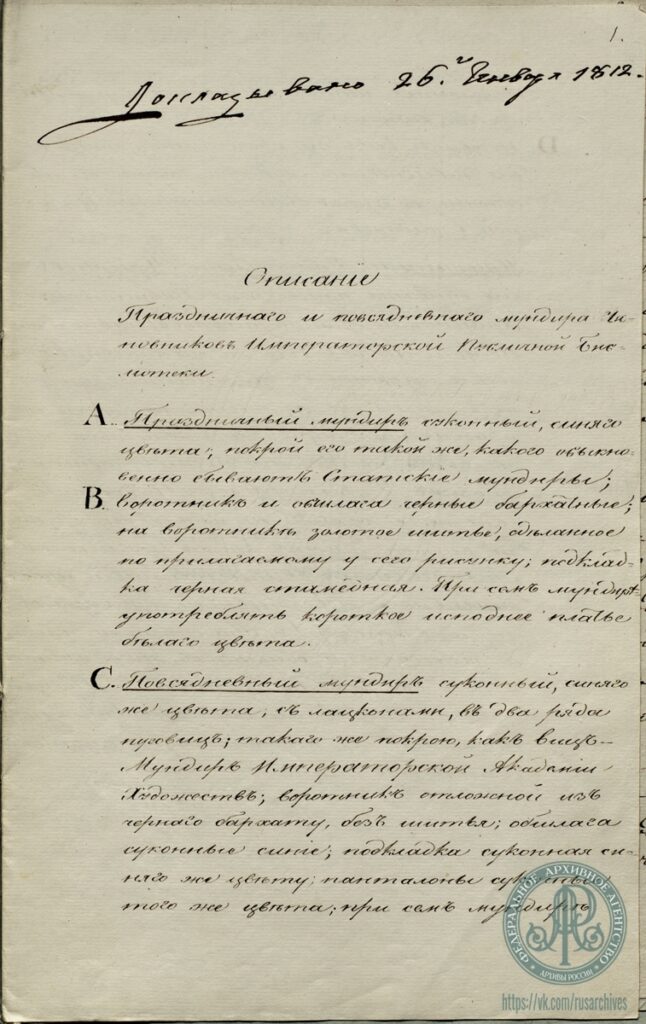 1.
Докладывано 26.го Января 1812.
Описаніе
Праздничнаго и повсядневнаго мундира Чи-
новниковъ Императорской Публичной Биб-
лiотеки.
A. Праздничный мундиръ суконный, синяго
цвѣта; покрой его такой же, какого обыкно-
венно бываютъ Статскіе мундиры;
B. воротникъ и обшлага черные бархатные;
на воротникѣ золотое шитье, сдѣланное
по прилагаемому у сего рисунку; подклад-
ка черная стамедная. При семъ мундирѣ
употреблять короткое исподнее платье
бѣлаго цвѣта.
C. Повсядневный мундиръ суконный, синяго
же цвѣта, съ лацканами, въ два ряда
пуговицъ; такаго же покрою, какъ вицъ-
Мундиръ Императорской Академіи
Художествъ; воротникъ отложной изъ
чернаго бархату, безъ шитья; обшлага
суконные синіе; подкладка суконная си-
няго же цвѣту; панталоны суконные
того же цвѣта; при семъ мундирѣ
ФЕДЕРАЛЬНОЕ АРХИВНОЕ АГЕНТСТВО
АРХИВЫ РОССИИ
https://vk.com/rusarchives